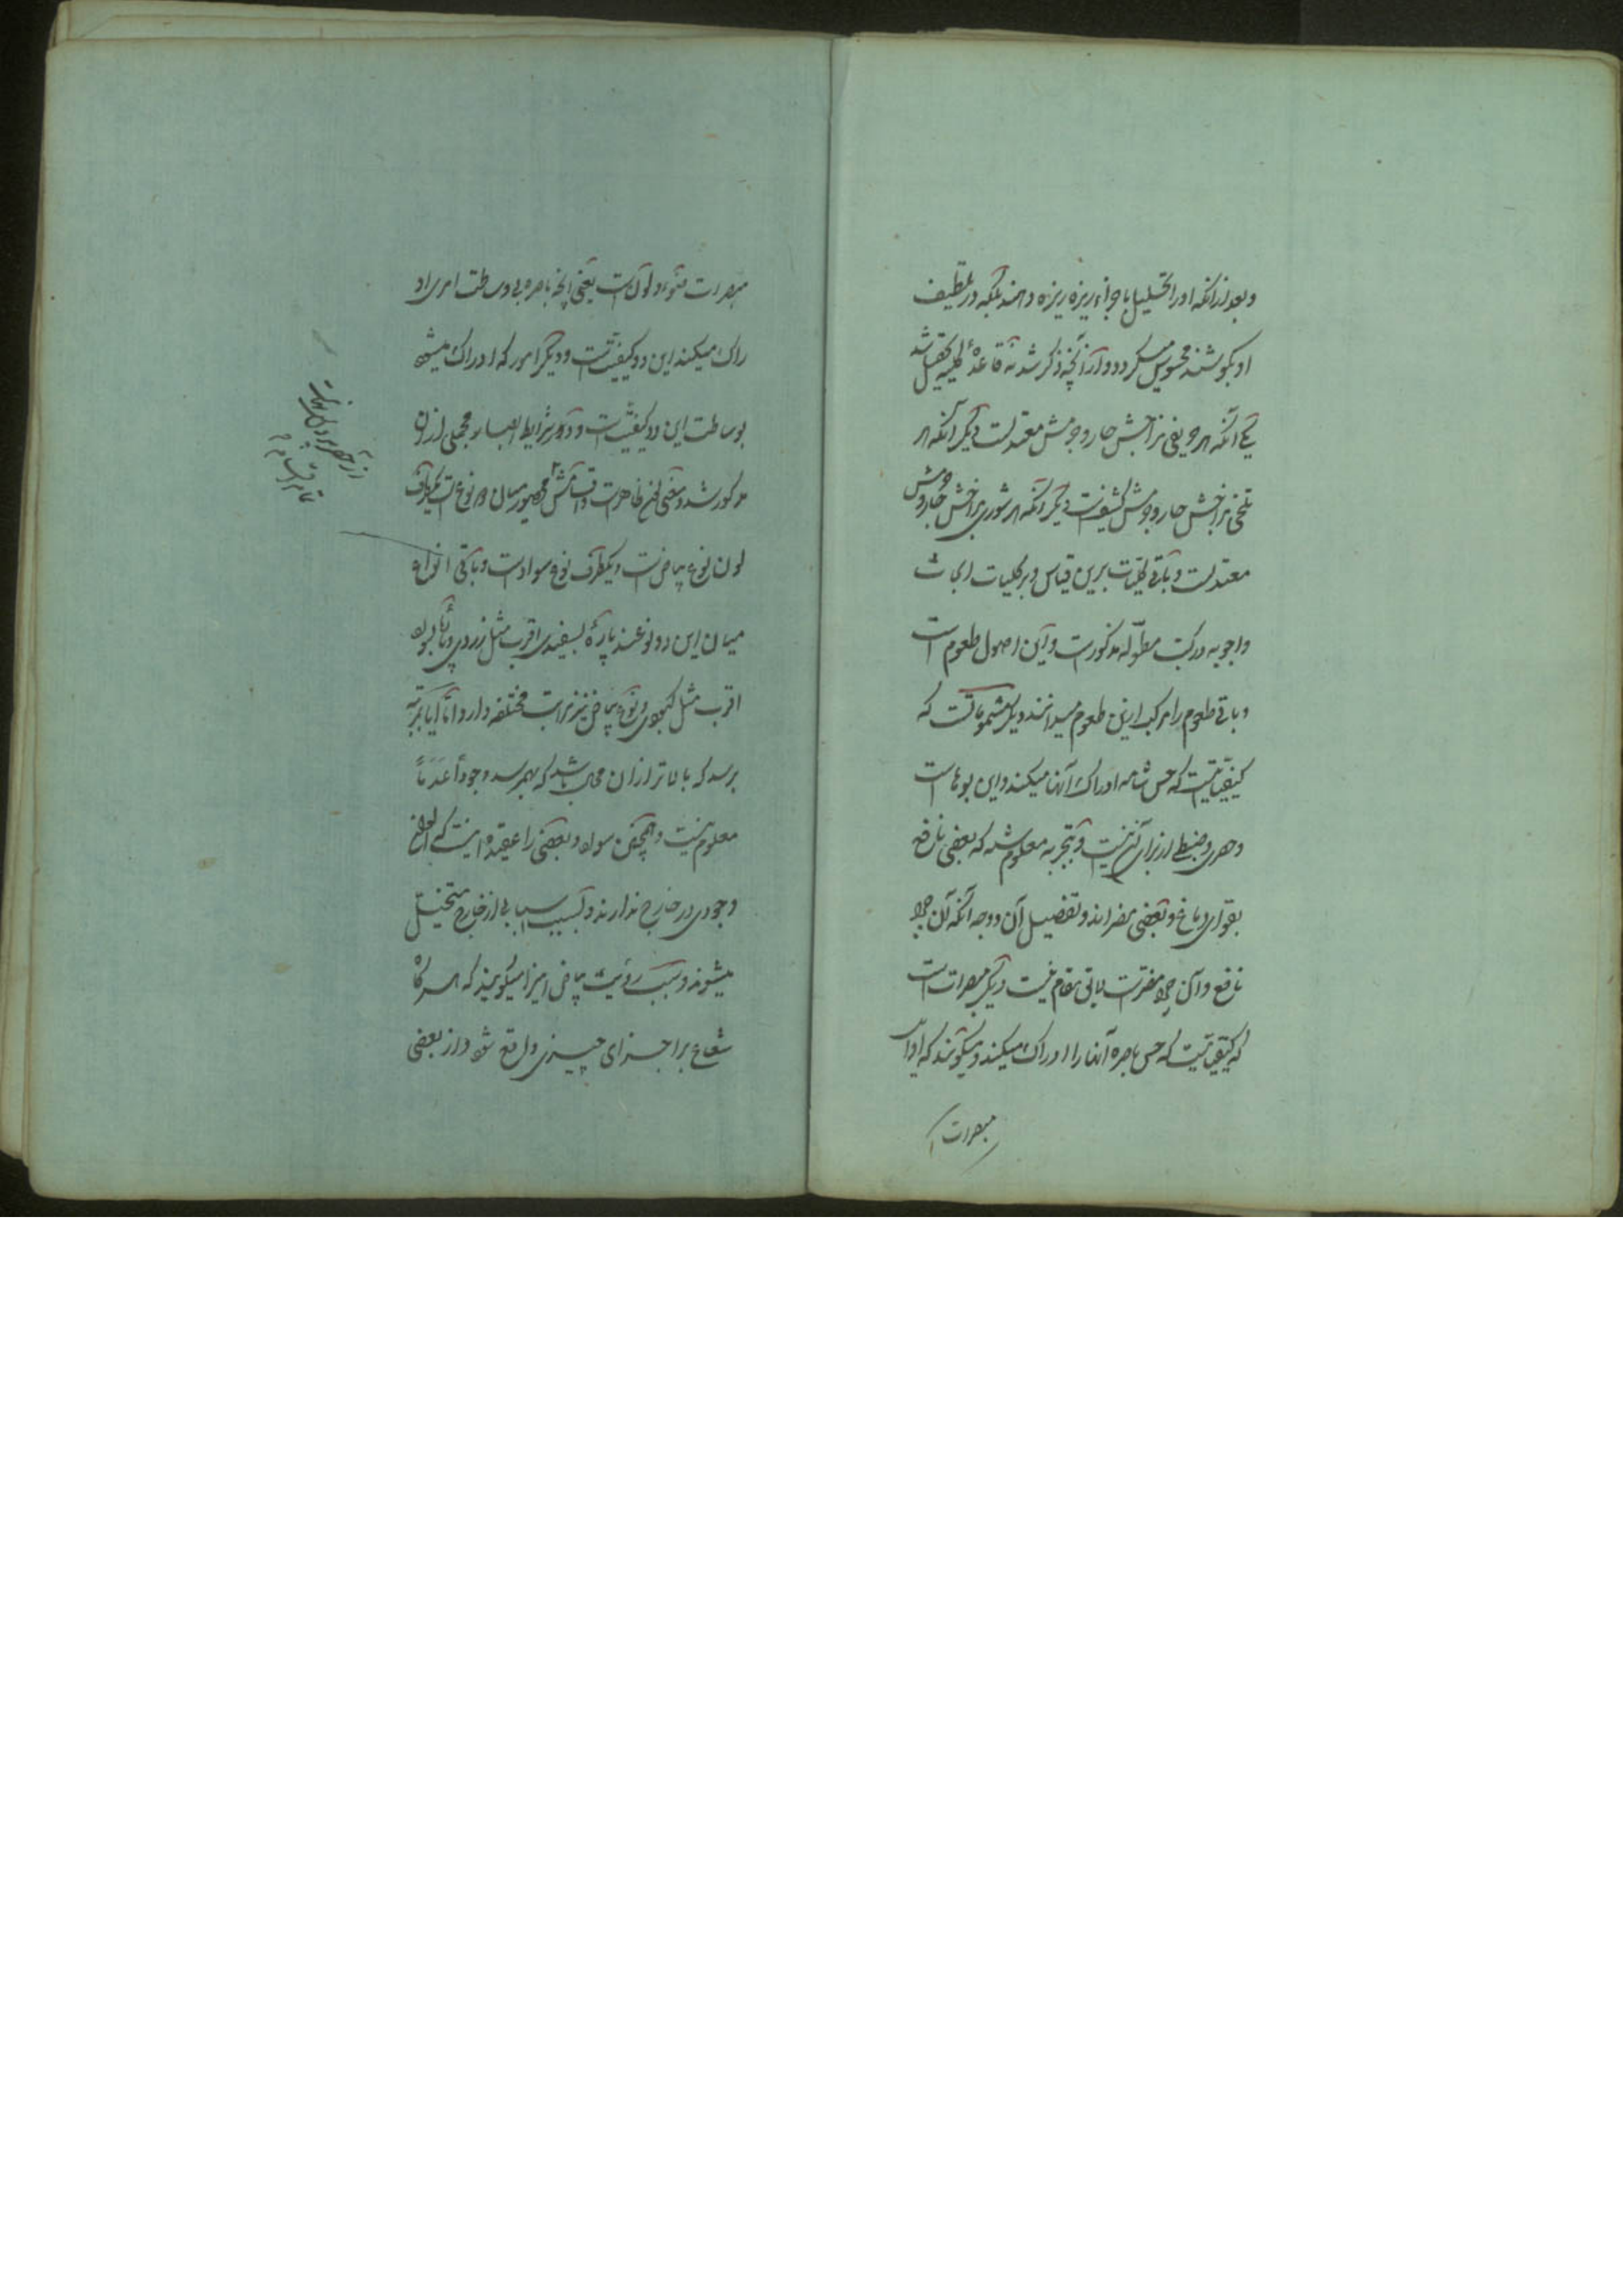 و بعد از آنکه او را تحلیل باجزاء ریزه ریزه دهند بلکه در تلطیف
او بکوشند محسوس میگردد و از آنچه ذکر شد نه قاعدهٔ کلیه
یکی آنکه هر حریفی مزاجش حار و جرمش معتدلست دیگر آنکه هر
تلخی مزاجش حار و جرمش کثیفست دیگر آنکه هر شوری مزاجش حار و جرمش
معتدلست و باقی کلیات برین قیاس و بر کلیات ابحاث
و اجوبه در کتب مطوّله مذکورست و این اصول طعوم است
و باقی طعوم را مرکب ازین طعوم میدانند دیگر مشمومات است که
کیفیاتیست که حس شامه ادراک آنها میکند و این بوهاست
و حصر و ضبط از برای آن نیست و بتجربه معلوم شده که بعضی نافع
بقوای دماغ و بعضی مضراند و تفصیل آن و وجه آنکه آن چرا
نافع و آن چرا مضرت لایق مقام نیست دیگر مبصرات است
که کیفیاتیست که حس باصره آنها را ادراک میکند و میگویند که اول
مبصرات
مبصرات ضوء و لون است یعنی آنچه باصره بی وساطت امری اد
راک میکند این دو کیفیتست و دیگر امور که ادراک میشود
بوساطت این دو کیفیتست و در شرایط ابصار مجملی ازان
مذکور شد و معنی لون ظاهرست و اقسامش محصور میان دو نوع است یکطرف
لون نوع بیاض است و یکطرف نوع سوادست و باقی انواع
میان این دو نوعند پارهٔ بسفیدی اقرب مثل زردی و پارهٔ بسواد
اقرب مثل کبودی و نوع بیاض نیز مراتب مختلفه دارد اما آیا بمرتبه
برسد که بالاتر ازان محال باشد که بهم رسد وجوداً عدماً
معلوم نیست و همچنین سواد و بعضی را عقیده اینست که الوان
وجودی در خارج ندارند و بسبب اسبابی از خارج متخیل
میشوند و سبب رؤیت بیاض امیز میگویند که هرگاه
شعاع بر اجزای چیزی واقع شود و از بعضی